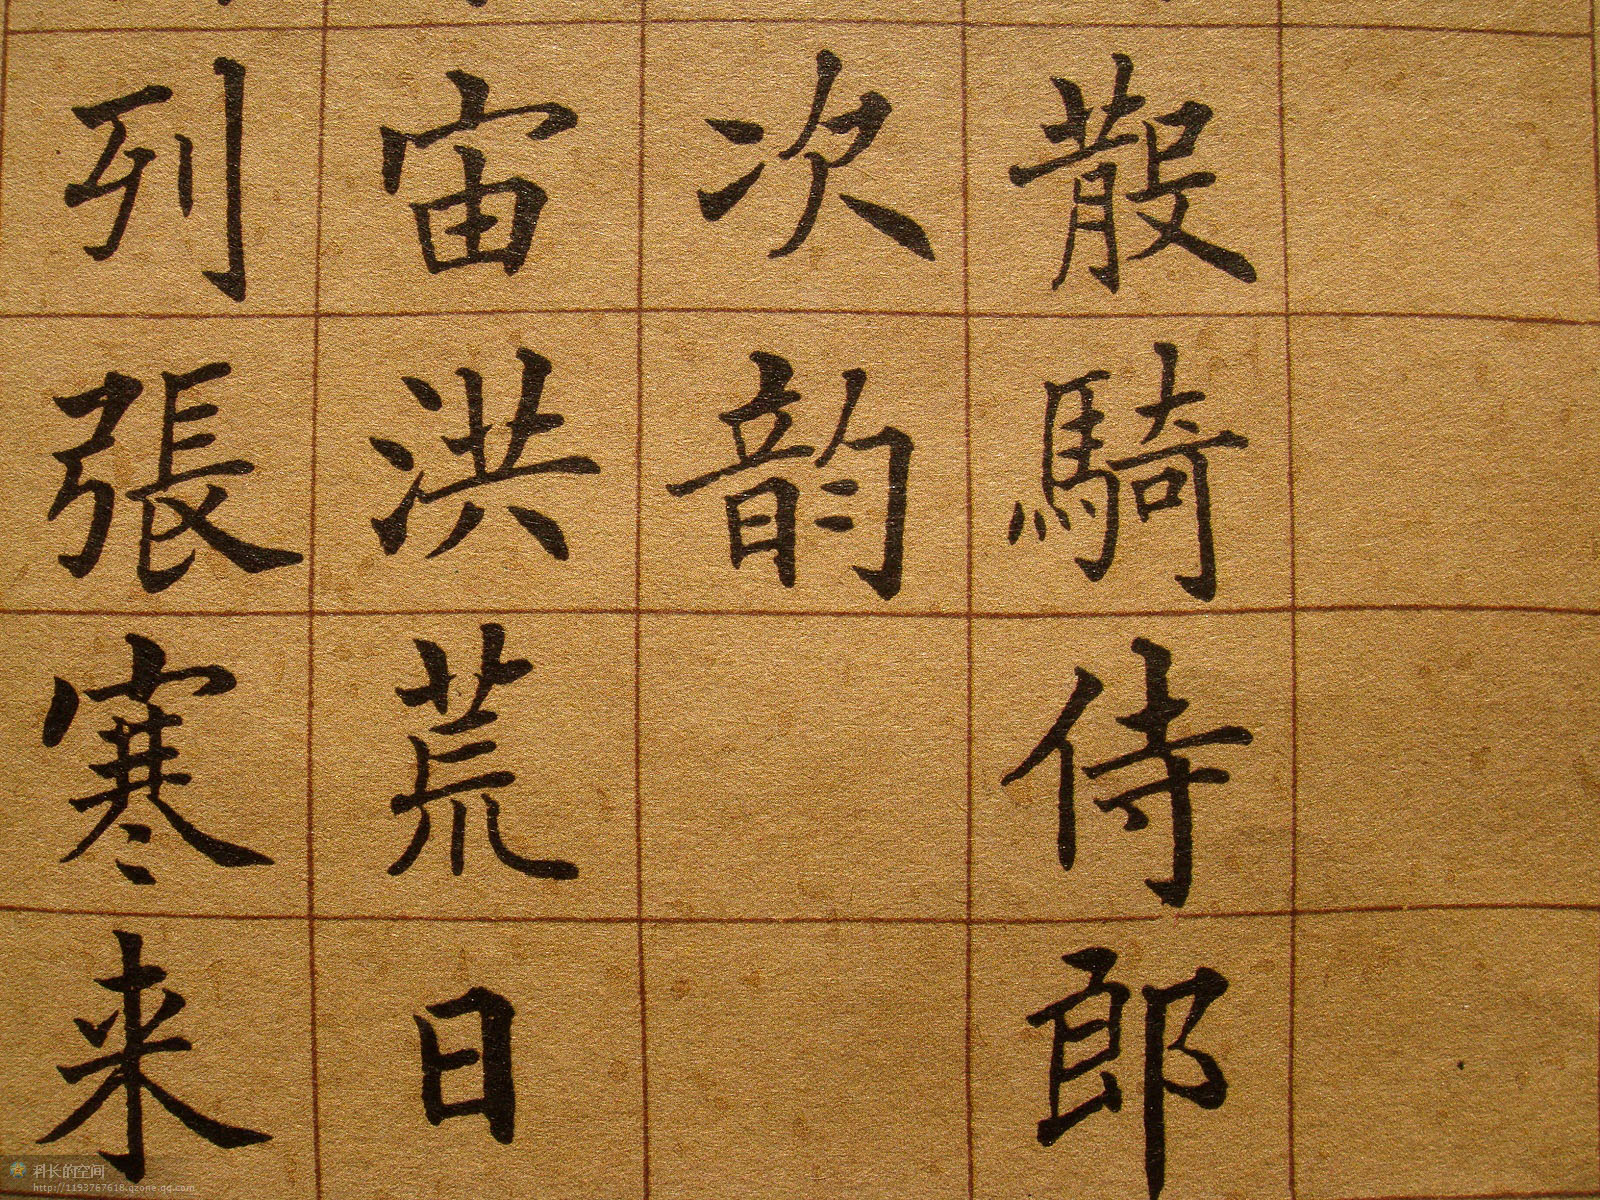 散騎侍郎
次韵
宙洪荒日
列張寒来
科长的空间
http://1193767618.qzone.qq.com